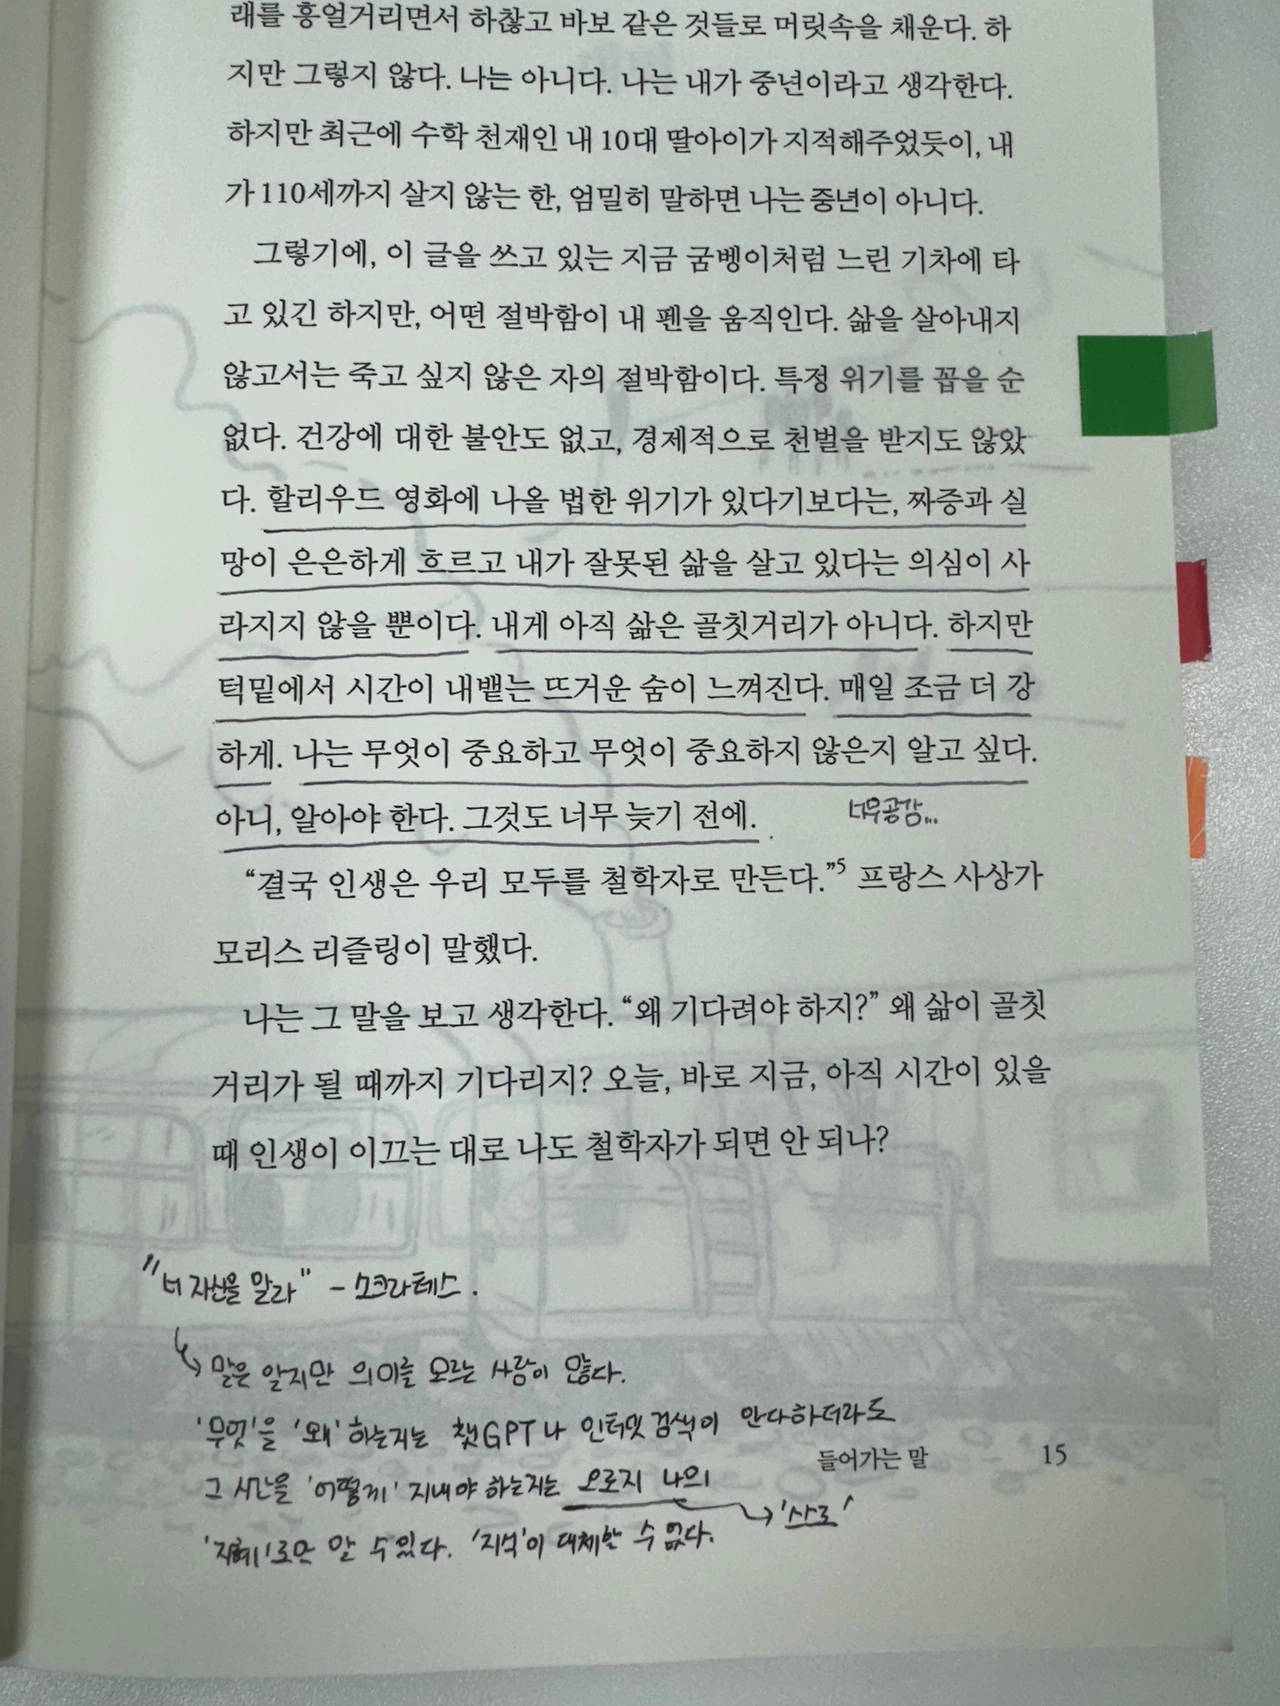 래를 흥얼거리면서 하찮고 바보 같은 것들로 머릿속을 채운다. 하
지만 그렇지 않다. 나는 아니다. 나는 내가 중년이라고 생각한다.
하지만 최근에 수학 천재인 내 10대 딸아이가 지적해주었듯이, 내
가 110세까지 살지 않는 한, 엄밀히 말하면 나는 중년이 아니다.
그렇기에, 이 글을 쓰고 있는 지금 굼벵이처럼 느린 기차에 타
고 있긴 하지만, 어떤 절박함이 내 펜을 움직인다. 삶을 살아내지
않고서는 죽고 싶지 않은 자의 절박함이다. 특정 위기를 꼽을 순
없다. 건강에 대한 불안도 없고, 경제적으로 천벌을 받지도 않았
다. 할리우드 영화에 나올 법한 위기가 있다기보다는, 짜증과 실
망이 은은하게 흐르고 내가 잘못된 삶을 살고 있다는 의심이 사
라지지 않을 뿐이다. 내게 아직 삶은 골칫거리가 아니다. 하지만
턱밑에서 시간이 내뱉는 뜨거운 숨이 느껴진다. 매일 조금 더 강
하게. 나는 무엇이 중요하고 무엇이 중요하지 않은지 알고 싶다.
아니, 알아야 한다. 그것도 너무 늦기 전에.
너무공감...
“결국 인생은 우리 모두를 철학자로 만든다.”5 프랑스 사상가
모리스 리즐링이 말했다.
나는 그 말을 보고 생각한다. “왜 기다려야 하지?” 왜 삶이 골칫
거리가 될 때까지 기다리지? 오늘, 바로 지금, 아직 시간이 있을
때 인생이 이끄는 대로 나도 철학자가 되면 안 되나?
"너 자신을 알라" - 소크라테스.
↳ 말은 알지만 의미를 모르는 사람이 많다.
'무엇'을 '왜' 하는지는 챗GPT나 인터넷 검색이 안다하더라도
들어가는 말 15
그 시간을 '어떻게' 지내야 하는지는 오로지 나의
→ '스스로'
'지혜'로만 알 수 있다. '지식'이 대체할 수 없다.